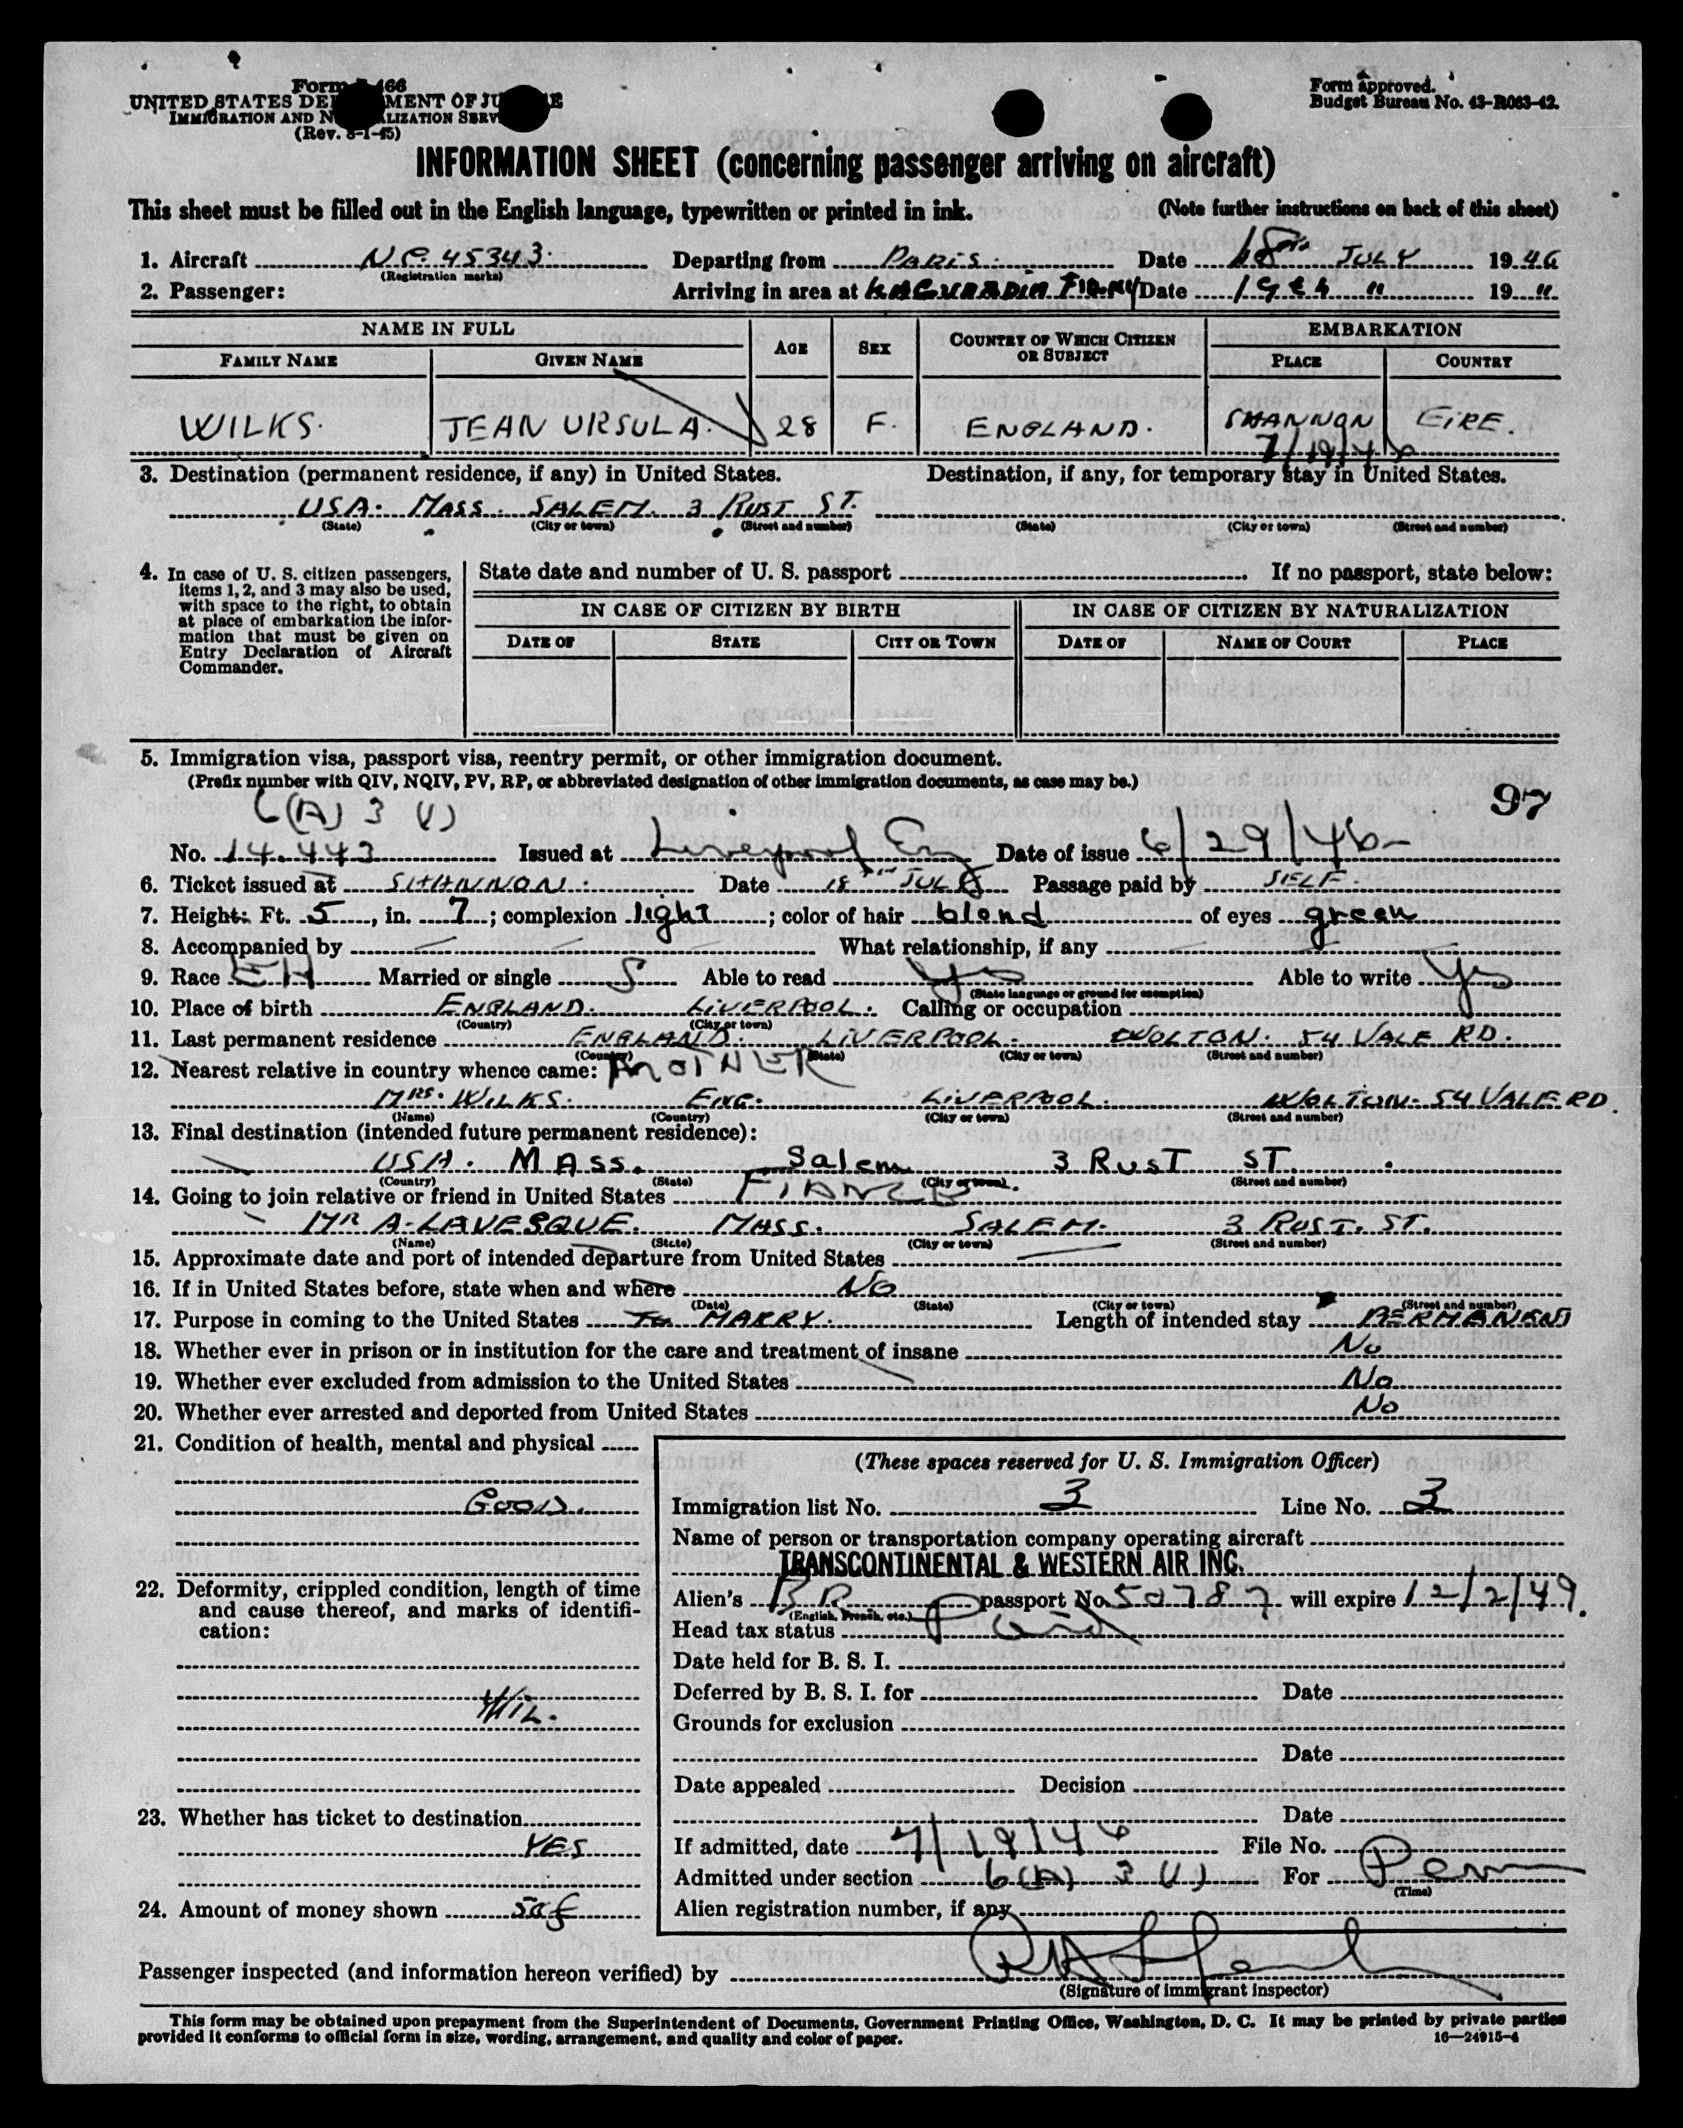 Form 466
UNITED STATES DEPARTMENT OF JUSTICE
IMMIGRATION AND NATURALIZATION SERVICE
(Rev. 8-1-45)
Form approved.
Budget Bureau No. 43-R063-42.
INFORMATION SHEET (concerning passenger arriving on aircraft)
This sheet must be filled out in the English language, typewritten or printed in ink. (Note further instructions on back of this sheet)
1. Aircraft N.C. 45343. Departing from PARIS. Date 18th JULY 1946
(Registration marks)
2. Passenger: Arriving in area at LAGUARDIA Date 19th " 19 "
NAME IN FULL AGE SEX COUNTRY OF WHICH CITIZEN OR SUBJECT EMBARKATION
FAMILY NAME GIVEN NAME PLACE COUNTRY
WILKS. JEAN URSULA. 28 F. ENGLAND. SHANNON EIRE.
7/19/46
3. Destination (permanent residence, if any) in United States. Destination, if any, for temporary stay in United States.
USA. MASS. SALEM. 3 RUST ST.
(State) (City or town) (Street and number) (State) (City or town) (Street and number)
4. In case of U. S. citizen passengers, items 1, 2, and 3 may also be used, with space to the right, to obtain at place of embarkation the information that must be given on Entry Declaration of Aircraft Commander.
State date and number of U. S. passport If no passport, state below:
IN CASE OF CITIZEN BY BIRTH IN CASE OF CITIZEN BY NATURALIZATION
DATE OF STATE CITY OR TOWN DATE OF NAME OF COURT PLACE
5. Immigration visa, passport visa, reentry permit, or other immigration document.
(Prefix number with QIV, NQIV, PV, RP, or abbreviated designation of other immigration documents, as case may be.)
6(A) 3 (1) 97
No. 14.443 Issued at Liverpool Eng Date of issue 6/29/46
6. Ticket issued at SHANNON. Date 18th JULY Passage paid by SELF.
7. Height: Ft. 5, in. 7; complexion light; color of hair blond of eyes green
8. Accompanied by What relationship, if any
9. Race EH Married or single S Able to read Yes Able to write Yes
(State language or ground for exemption)
10. Place of birth ENGLAND. LIVERPOOL. Calling or occupation
(Country) (City or town)
11. Last permanent residence ENGLAND. LIVERPOOL. WOLTON. 54 VALE RD.
(Country) (State) (City or town) (Street and number)
12. Nearest relative in country whence came: MOTHER
MRS. WILKS. ENG. LIVERPOOL. WOLTON. 54 VALE RD.
(Name) (Country) (City or town) (Street and number)
13. Final destination (intended future permanent residence):
USA. MASS. Salem 3 RUST ST.
(Country) (State) (City or town) (Street and number)
14. Going to join relative or friend in United States FIANCE
MR A. LAVESQUE. MASS. SALEM. 3 RUST. ST.
(Name) (State) (City or town) (Street and number)
15. Approximate date and port of intended departure from United States
16. If in United States before, state when and where NO
(Date) (State) (City or town) (Street and number)
17. Purpose in coming to the United States To MARRY. Length of intended stay PERMANENT
18. Whether ever in prison or in institution for the care and treatment of insane No
19. Whether ever excluded from admission to the United States No
20. Whether ever arrested and deported from United States No
21. Condition of health, mental and physical
GOOD.
22. Deformity, crippled condition, length of time and cause thereof, and marks of identification:
NIL.
23. Whether has ticket to destination
YES
24. Amount of money shown 50£
(These spaces reserved for U. S. Immigration Officer)
Immigration list No. 3 Line No. 3
Name of person or transportation company operating aircraft
TRANSCONTINENTAL & WESTERN AIR INC.
Alien's BR passport No. 50787 will expire 12/2/49.
(English, French, etc.)
Head tax status Paid
Date held for B. S. I.
Deferred by B. S. I. for Date
Grounds for exclusion
Date
Date appealed Decision
Date
If admitted, date 7/19/46 File No.
Admitted under section 6(A) 3 (1) For Perm
(Time)
Alien registration number, if any
Passenger inspected (and information hereon verified) by
(Signature of immigrant inspector)
This form may be obtained upon prepayment from the Superintendent of Documents, Government Printing Office, Washington, D. C. It may be printed by private parties
provided it conforms to official form in size, wording, arrangement, and quality and color of paper. 16—24915-4